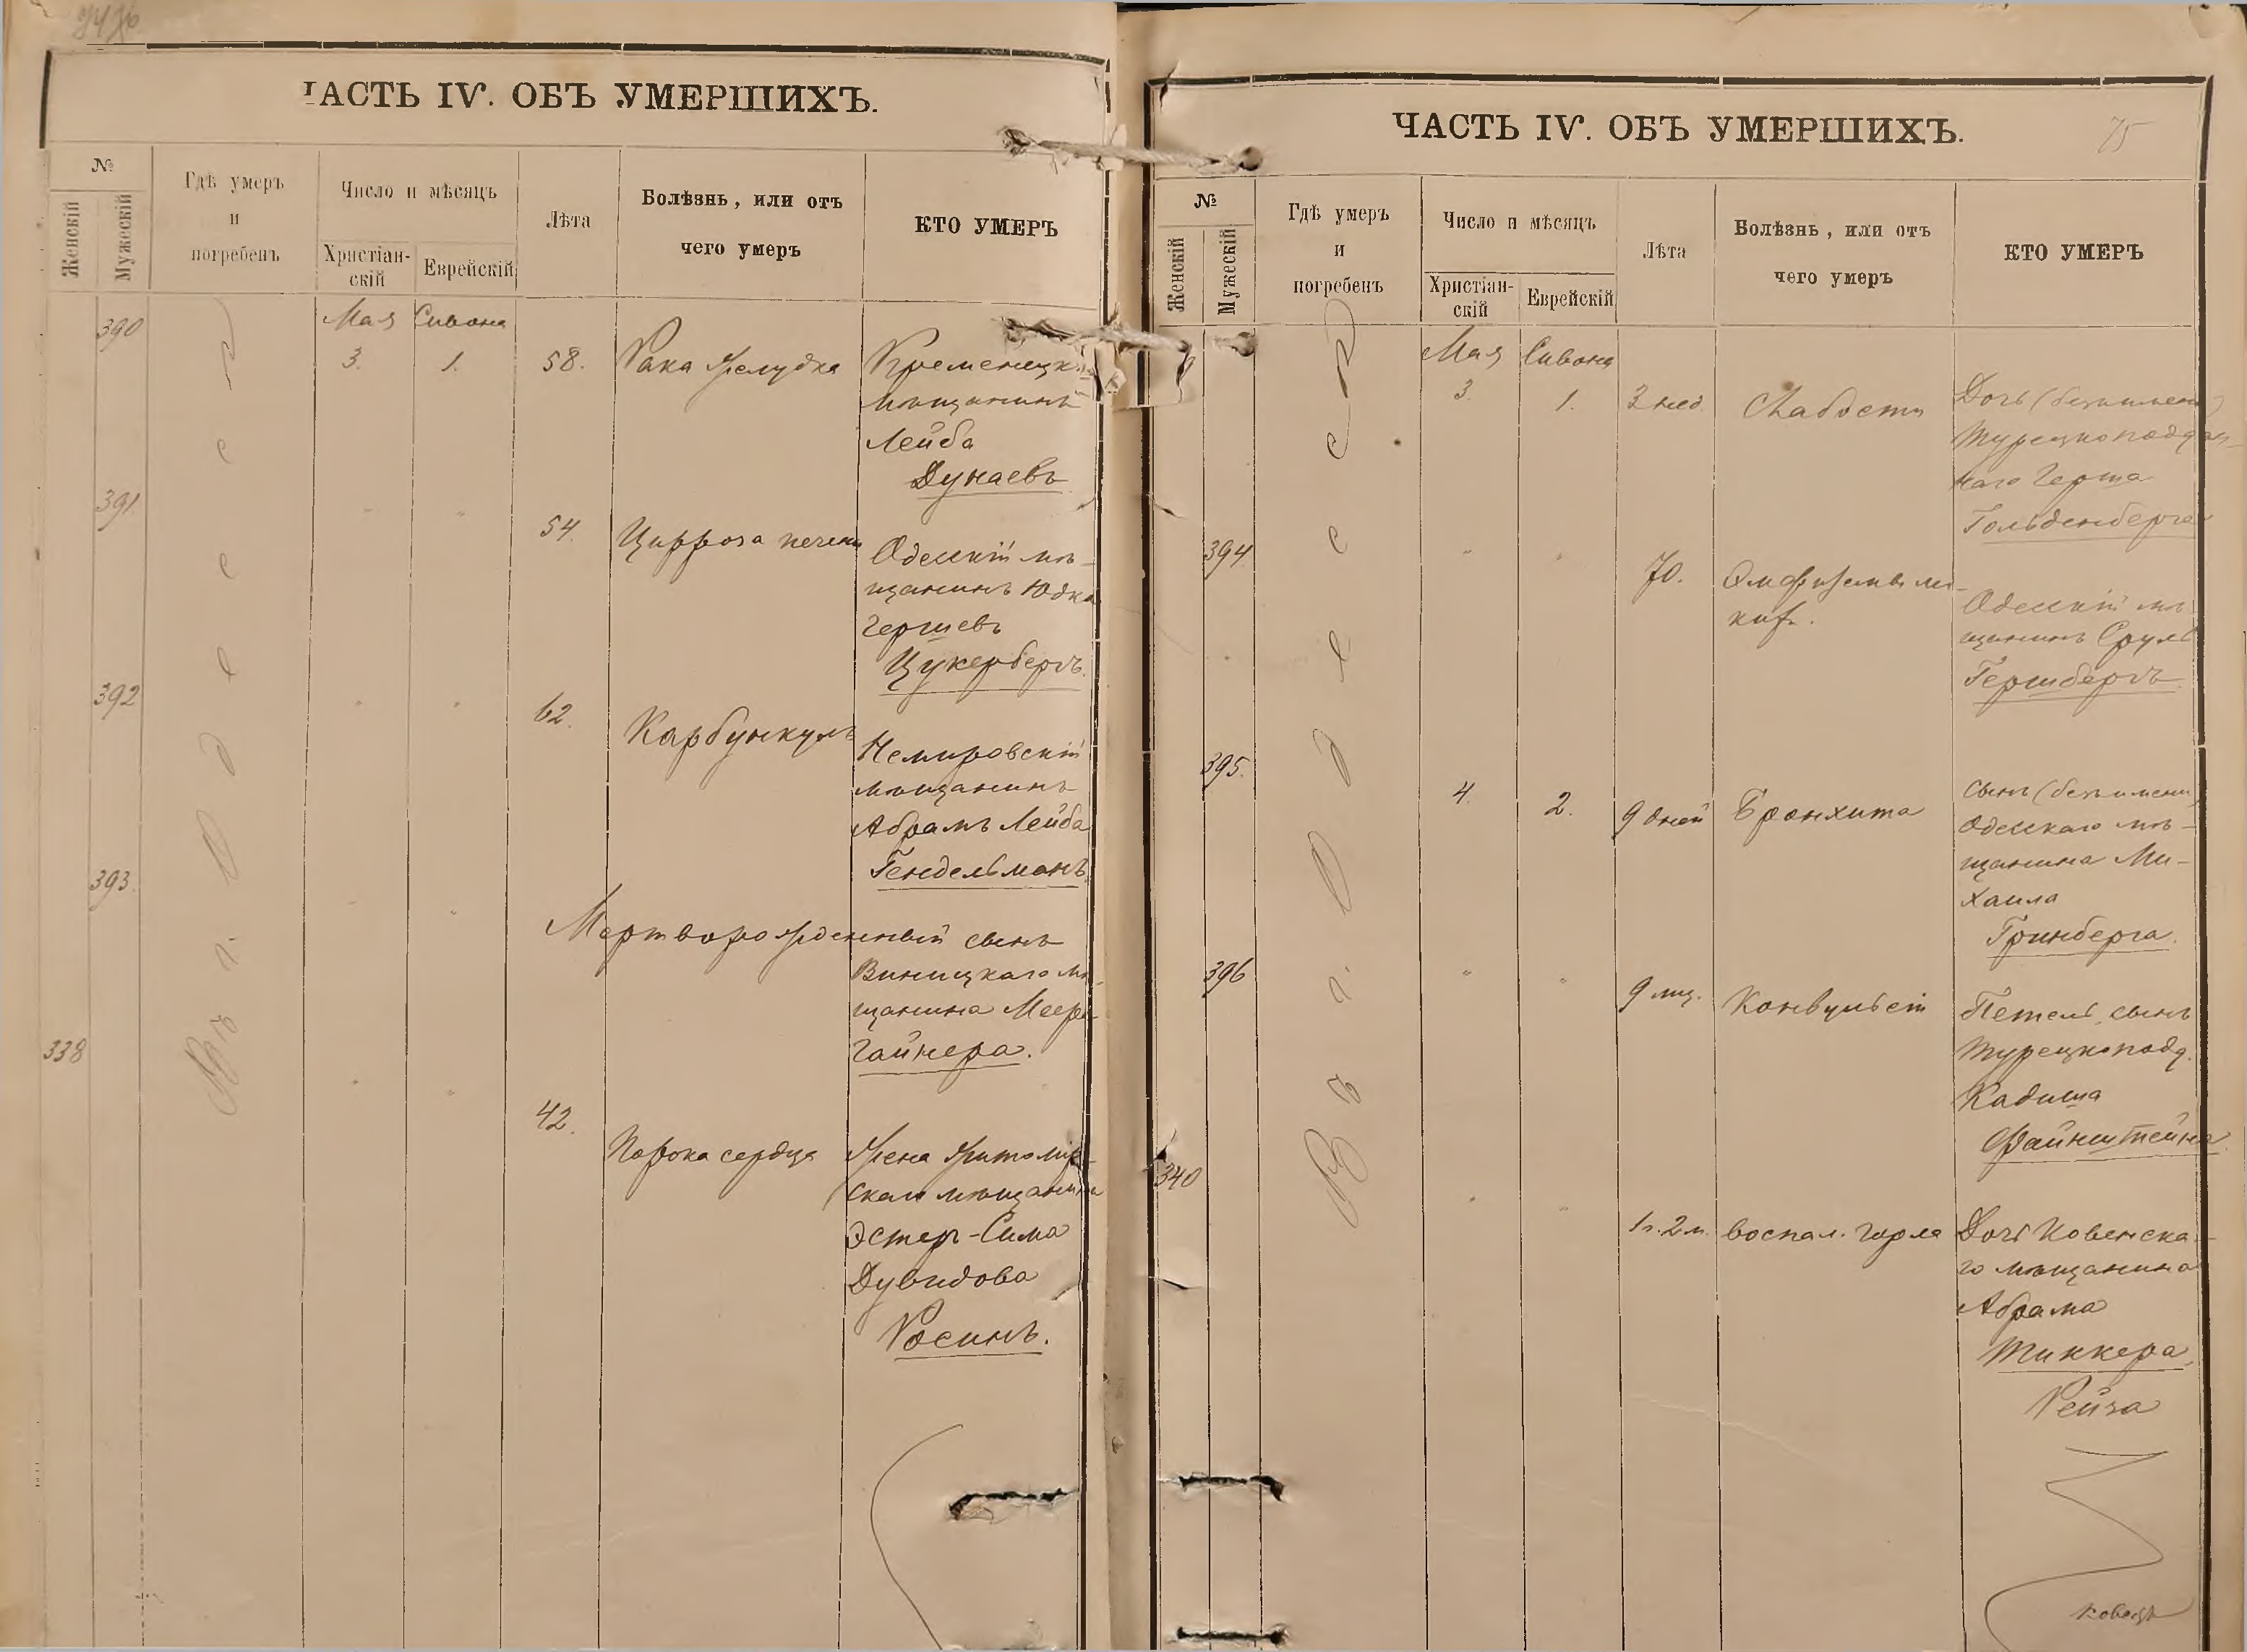 ЧАСТЬ IV. ОБЪ УМЕРШИХЪ.
№
Женскій
Мужескій
Гдѣ умеръ
и
погребенъ
Число и мѣсяцъ
Христіан-
скій
Еврейскій
Лѣта
Болѣзнь, или отъ
чего умеръ
КТО УМЕРЪ
Въ г. Одессѣ
390
Мая Сивона
3. 1. 58. Рака желудка Кременецкій
мѣщанинъ
Лейба
Дунаевъ
391
" " 54. Цирроза печени Одесскій мѣ-
щанинъ Юдка
Гершевъ
Цукербергъ.
392
" " 62. Карбункулъ Немировскій
мѣщанинъ
Абрамъ Лейба
Гендельманъ.
393.
" " Мертворожденный сынъ
Виницкаго мѣ-
щанина Меера
Гайнера.
338
" " 42. Порока сердца Жена Житомир-
скаго мѣщанина
Эстеръ-Сима
Дувидова
Росинъ.
ЧАСТЬ IV. ОБЪ УМЕРШИХЪ.
75
№
Женскій
Мужескій
Гдѣ умеръ
и
погребенъ
Число и мѣсяцъ
Христіан-
скій
Еврейскій
Лѣта
Болѣзнь, или отъ
чего умеръ
КТО УМЕРЪ
Въ г. Одессѣ
Мая Сивона
3. 1. 3 нед. Слабости Дочь (безъ имени)
Турецкоподдан-
наго Герша
Гольденберга
394
" " 70. Эмфиземы лег-
кихъ. Одесскій мѣ-
щанинъ Сруль
Гершбергъ.
395.
4. 2. 9 дней Бронхита Сынъ (безъ имени)
Одесскаго мѣ-
щанина Ми-
хаила
Гринберга.
396
" " 9 мѣс. Конвульсій Петель, сынъ
Турецкопод.
Кадиша
Файнштейна
340
" " 1г. 2м. воспал. горла Дочь Ковенска-
го мѣщанина
Абрама
Тиккера,
Рейза